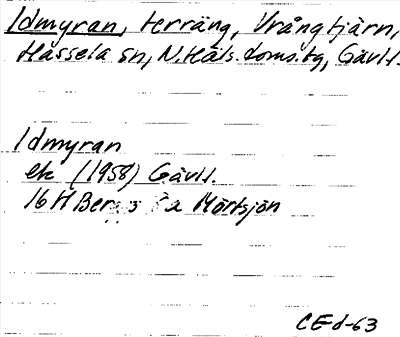 Idmyran, terräng, Vrångtjärn,
Hassela sn, N.Häls.doms.bg, Gävl.
Idmyran
ek (1958) Gävl.
16H Mörtsjön
CEd-63